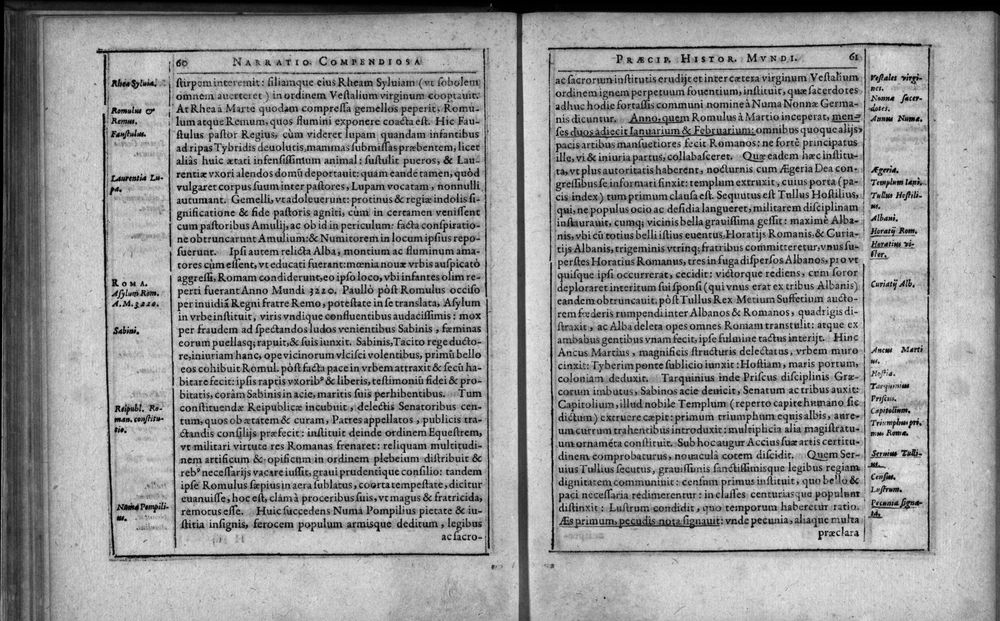 60 NARRATIO COMPENDIOSA
Rhea Syluia.
stirpem interemit: filiamque eius Rheam Syluiam (vt sobolem
omnem auerteret) in ordinem Vestalium virginum cooptauit.
Romulus &
Remus.
At Rhea à Marte quodam compressa gemellos peperit, Romu-
lum atque Remum, quos flumini exponere coacta est. Hic Fau-
Faustulus.
stulus pastor Regius, cùm videret lupam quandam infantibus
ad ripas Tybridis deuolutis, mammas submississ præbentem, licet
aliàs huic ætati infensissimum animal: sustulit pueros, & Lau-
Laurentia Lu-
pa.
rentiæ vxori alendos domũ deportauit: quam eandẽ tamen, quòd
vulgaret corpus suum inter pastores, Lupam vocatam, nonnulli
autumant. Gemelli, vt adoleuerunt: protinus & regiæ indolis si-
gnificatione & fide pastoris agniti, cùm in certamen venissent
cum pastoribus Amulij, ac ob id in periculum: facta conspiratio-
ne obtruncarunt Amulium: & Numitorem in locum ipsius repo-
suerunt. Ipsi autem relicta Alba, montium ac fluminum ama-
tores cùm essent, vt educati fuerant: mœnia nouæ vrbis auspicatò
ROMA.
aggressi, Romam condiderunt, eo ipso loco, vbi infantes olim re-
Asylum Rom.
A. M. 3220.
perti fuerant Anno Mundi 3220. Paullò pòst Romulus occiso
per inuidiã Regni fratre Remo, potestate in se translata, Asylum
in vrbe instituit, viris vndique confluentibus audacissimis: mox
Sabini.
per fraudem ad spectandos ludos venientibus Sabinis, fœminas
eorum puellasq; rapuit, & suis iunxit. Sabinis, Tacito rege ducto-
re, iniuriam hanc, ope vicinorum vlcisci volentibus, primũ bello
eos cohibuit Romul. pòst facta pace in vrbem attraxit & secũ ha-
bitare fecit: ipsis raptis vxoribꝰ & liberis, testimoniũ fidei & pro-
bitatis, coràm Sabinis in acie, maritis suis perhibentibus. Tum
Reipubl. Ro-
man. constitu-
tio.
constituendæ Reipublicæ incubuit, delectis Senatoribus cen-
tum, quos ob ætatem & curam, Patres appellatos, publicis tra-
ctandis consilijs præfecit: instituit deinde ordinem Equestrem,
vt militari virtute res Romanas frenaret: reliquam multitudi-
nem artificum & opificum in ordinem plebeium distribuit &
rebꝰ necessarijs vacare iussit, graui prudentique consilio: tandem
ipse Romulus sæpius in aera sublatus, coorta tempestate, dicitur
euanuisse, hoc est, clàm à proceribus suis, vt magus & fratricida,
Numa Pompili-
us.
remotus esse. Huic succedens Numa Pompilius pietate & iu-
stitia insignis, ferocem populum armisque deditum, legibus
ac sacro-
PRÆCIP. HISTOR. MVNDI. 61
ac sacrorum institutis erudijt et inter cætera virginum Vestalium
Vestales virgi-
nes.
ordinem ignem perpetuum fouentium, instituit, quæ sacerdotes
Nonnæ sacer-
dotes.
adhuc hodie fortassis communi nomine à Numa Nonnæ Germa-
nis dicuntur. Anno, quem Romulus à Martio inceperat, men-
Annus Numæ.
ses duos adiecit Ianuarium & Februarium: omnibus quoque alijs
pacis artibus mansuetiores fecit Romanos: ne fortè principatus
ille, vi & iniuria partus, collabasceret. Quæ eadem hæc institu-
ta, vt plus autoritatis haberent, nocturnis cum Ægeria Dea con-
Ægeria.
gressibus se informari finxit: templum extruxit, cuius porta (pa-
Templum Iani.
cis index) tum primum clausa est. Sequutus est Tullus Hostilius,
Tullus Hostili-
us.
qui, ne populus ocio ac desidia langueret, militarem disciplinam
instaurauit, cumq; vicinis bella grauissima gessit: maximè Alba-
Albani.
nis, vbi cũ totius belli istius euentus, Horatijs Romanis, & Curia-
Horatij Rom.
tijs Albanis, trigeminis vtrinq; fratribus committeretur, vnus su-
Horatius vi-
ctor.
perstes Horatius Romanus, tres in fuga dispersos Albanos, pro vt
quisque ipsi occurrerat, cecidit: victorque rediens, cùm soror
deploraret interitum sui sponsi (qui vnus erat ex tribus Albanis)
Curiatij Alb.
eandem obtruncauit. pòst Tullus Rex Metium Suffetium aucto-
rem fœderis rumpendi inter Albanos & Romanos, quadrigis di-
straxit, ac Alba deleta opes omnes Romam transtulit: atque ex
ambabus gentibus vnam fecit, ipse fulmine tactus interijt. Hinc
Ancus Marti
us.
Ancus Martius, magnificis structuris delectatus, vrbem muro
cinxit: Tyberim ponte sublicio iunxit: Hostiam, maris portum,
Hostia.
coloniam deduxit. Tarquinius inde Priscus disciplinis Græ-
Tarquinius
Priscus.
corum imbutus, Sabinos acie deuicit, Senatum ac tribus auxit:
Capitolium, illud nobile Templum (reperto capite humano sic
Capitolium.
dictum) extruere cœpit: primum triumphum equis albis, aure-
Triumphus pri-
mus Romæ.
um currum trahentibus introduxit: multiplicia alia magistratu-
um ornamẽta constituit. Sub hoc augur Accius suæ artis certitu-
dinem comprobaturus, nouaculâ cotem discidit. Quem Ser-
Seruius Tulli-
us.
uius Tullius secutus, grauissimis sanctissimisque legibus regiam
dignitatem communiuit: censum primus instituit, quo bello &
Census.
paci necessaria redimerentur: in classes centuriasque populum
Lustrum.
distinxit: Lustrum condidit, quo temporum haberetur ratio.
Pecunia signa-
ta.
Æs primum, pecudis nota signauit: vnde pecunia, aliaque multa
præclara